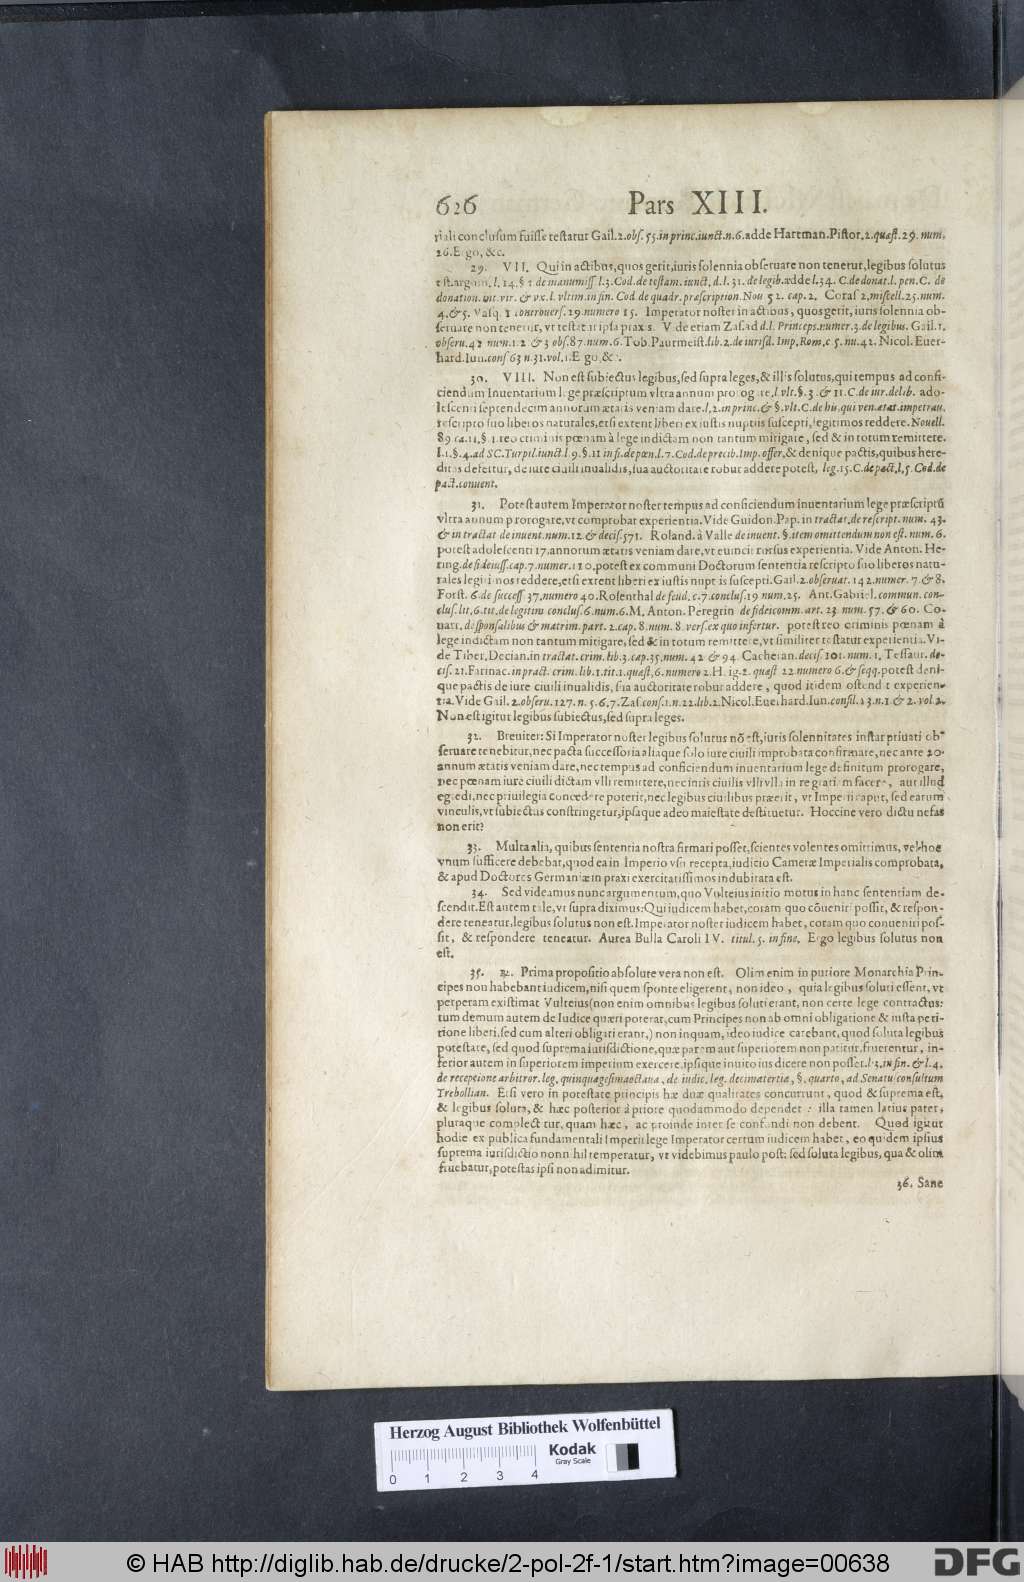 626 Pars XIII.
riali conclusum fuisse testatur Gail. 2. obs. 55. in princ. iunct. n. 6. adde Hartman. Pistor. 2. quæst. 29. num.
26. Ergo, &c.
29. VII. Qui in actibus, quos gerit, iuris solennia obseruare non tenetur, legibus solutus
est. argum. l. 14. § 1 de manumiss. l. 3. Cod. de testam. iunct. d. l. 31. de legib. adde l. 34. C. de donat. l. pen. C. de
donation. int. vir. & vx. l. vltim. in fin. Cod de quadr. præscription. Nou 52. cap. 2. Coras 2. miscell. 25. num.
4. & 5. Vasq. 1 controuers. 29. numero 15. Imperator noster in actibus, quos gerit, iuris solennia ob-
seruare non tenetur, vt testatur ipsa praxis. Vide etiam Zas. ad d. l. Princeps. numer. 3. de legibus. Gail. 1.
obseru. 41 num. 1. 2 & 3 obs. 87. num. 6. Tob. Paurmeist. lib. 2. de iurisd. Imp. Rom. c 5. nu. 42. Nicol. Euer-
hard. Iun. cons 63 n. 31. vol. 1. Ergo, &c.
30. VIII. Non est subiectus legibus, sed supra leges, & illis solutus, qui tempus ad confi-
ciendum Inuentarium lege præscriptum vltra annum prorogare, l. vlt. §. 3. & 11. C. de iur. delib. ado-
lescenti septendecim annorum ætatis veniam dare. l, 2. in princ. & §. vlt. C. de his, qui ven. ætat. impetrau.
rescripto suo liberos naturales, etsi extent liberi ex iustis nuptiis suscepti, legitimos reddere. Nouell.
89 ca. 11. §. 1. reo criminis pœnam à lege indictam non tantum mitigare, sed & in totum remittere.
l. 1. §. 4. ad SC. Turpil. iunct. l 9. §. 11 in fi. de pœn. l. 7. Cod. de precib. Imp. offer. & denique pactis, quibus here-
ditas defertur, de iure ciuili inualidis, sua auctoritate robur addere potest, leg. 15. C. de pact. l, 5. Cod. de
pact. conuent.
31. Potest autem Imperator noster tempus ad conficiendum inuentarium lege præscriptũ
vltra annum prorogare, vt comprobat experientia. Vide Guidon. Pap. in tractat. de rescript. num. 43.
& in tractat de inuent. num. 12. & decis. 571. Roland. à Valle de inuent. §. item omittendum non est. num. 6.
potest adolescenti 17. annorum ætatis veniam dare, vt euincit rursus experientia. Vide Anton. He-
ring. de fideiuss. cap. 7. numer. 110. potest ex communi Doctorum sententia rescripto suo liberos natu-
rales legitimos reddere, etsi extent liberi ex iustis nuptiis suscepti. Gail. 2. obseruat. 142. numer. 7. & 8.
Forst. 6. de success. 37. numero 40. Rosenthal de feud. c. 7. conclus. 19 num. 25. Ant. Gabriel. commun. con-
clus. lit. 6. tit. de legitim conclus. 6. num. 6. M. Anton. Peregrin de fideicomm. art. 23. num. 57. & 60. Co-
uarr. de sponsalibus & matrim. part. 2. cap. 8. num. 8. vers. ex quo infertur. potest reo criminis pœnam à
lege indictam non tantum mitigare, sed & in totum remittere, vt similiter testatur experientia. Vi-
de Tiber. Decian. in tractat. crim. lib. 3. cap. 35. num. 42 & 94. Cacheran. decis. 101. num. 1. Tessaur. de-
cis. 21. Farinac. in pract. crim. lib. 1. tit. 1. quæst, 6. numero 2. Hig. 2. quæst 22 numero 6. & seqq. potest deni-
que pactis de iure ciuili inualidis, sua auctoritate robur addere, quod itidem ostendit experien-
tia. Vide Gail. 2. obseru. 127. n. 5. 6. 7. Zas. cons. 1. n. 22. lib. 2. Nicol. Euerhard. Iun. consil. 13. n. 1 & 2. vol 2.
Non est igitur legibus subiectus, sed supra leges.
32. Breuiter: Si Imperator noster legibus solutus nõ est, iuris solennitates instar priuati ob-
seruare tenebitur, nec pacta successoria aliaque solo iure ciuili improbata confirmare, nec ante 20.
annum ætatis veniam dare, nec tempus ad conficiendum inuentarium lege definitum prorogare,
nec pœnam iure ciuili dictam vlli remittere, nec iuris ciuilis vlli vllam gratiam facere, aut illud
egredi, nec priuilegia concedere poterit, nec legibus ciuilibus præerit, vt Imperii caput, sed earum
vinculis, vt subiectus constringetur, ipsaque adeo maiestate destituetur. Hoccine vero dictu nefas
non erit?
33. Multa alia, quibus sententia nostra firmari posset, scientes volentes omittimus, vel hoc
vnum sufficere debebat, quod ea in Imperio vsu recepta, iudicio Cameræ Imperialis comprobata,
& apud Doctores Germaniæ in praxi exercitatissimos indubitata est.
34. Sed videamus nunc argumentum, quo Vulteius initio motus in hanc sententiam de-
scendit. Est autem tale, vt supra diximus: Qui iudicem habet, coram quo cõueniri possit, & respon-
dere teneatur, legibus solutus non est. Imperator noster iudicem habet, coram quo conueniri pos-
sit, & respondere teneatur. Aurea Bulla Caroli IV. titul. 5. in fine. Ergo legibus solutus non
est.
35. R. Prima propositio absolute vera non est. Olim enim in puriore Monarchia Prin-
cipes non habebant iudicem, nisi quem sponte eligerent, non ideo, quia legibus soluti essent, vt
perperam existimat Vulteius (non enim omnibus legibus soluti erant, non certe lege contractus:
tum demum autem de Iudice quæri poterat, cum Principes non ab omni obligatione & iusta peti-
tione liberi, sed cum alteri obligati erant,) non inquam, ideo iudice carebant, quod soluta legibus
potestate, sed quod suprema iurisdictione, quæ parem aut superiorem non patitur, fruerentur, in-
ferior autem in superiorem imperium exercere, ipsique inuito ius dicere non posset. l. 3. in fin. & l. 4.
de receptione arbitror. leg. quinquagesima octaua, de iudic. leg. decimatertia, §. quarto, ad Senatu consultum
Trebollian. Etsi vero in potestate principis hæ duæ qualitates concurrunt, quod & suprema est,
& legibus soluta, & hæc posterior à priore quodammodo dependet: illa tamen latius patet,
pluraque complectitur, quam hæc, ac proinde inter se confundi non debent. Quod igitur
hodie ex publica fundamentali Imperii lege Imperator certum iudicem habet, eo quidem ipsius
suprema iurisdictio nonnihil temperatur, vt videbimus paulo post: sed soluta legibus, qua & olim
fruebatur, potestas ipsi non adimitur.
36. Sane
Herzog August Bibliothek Wolfenbüttel
Kodak
Gray Scale
0 1 2 3 4
© HAB http://diglib.hab.de/drucke/2-pol-2f-1/start.htm?image=00638
DFG